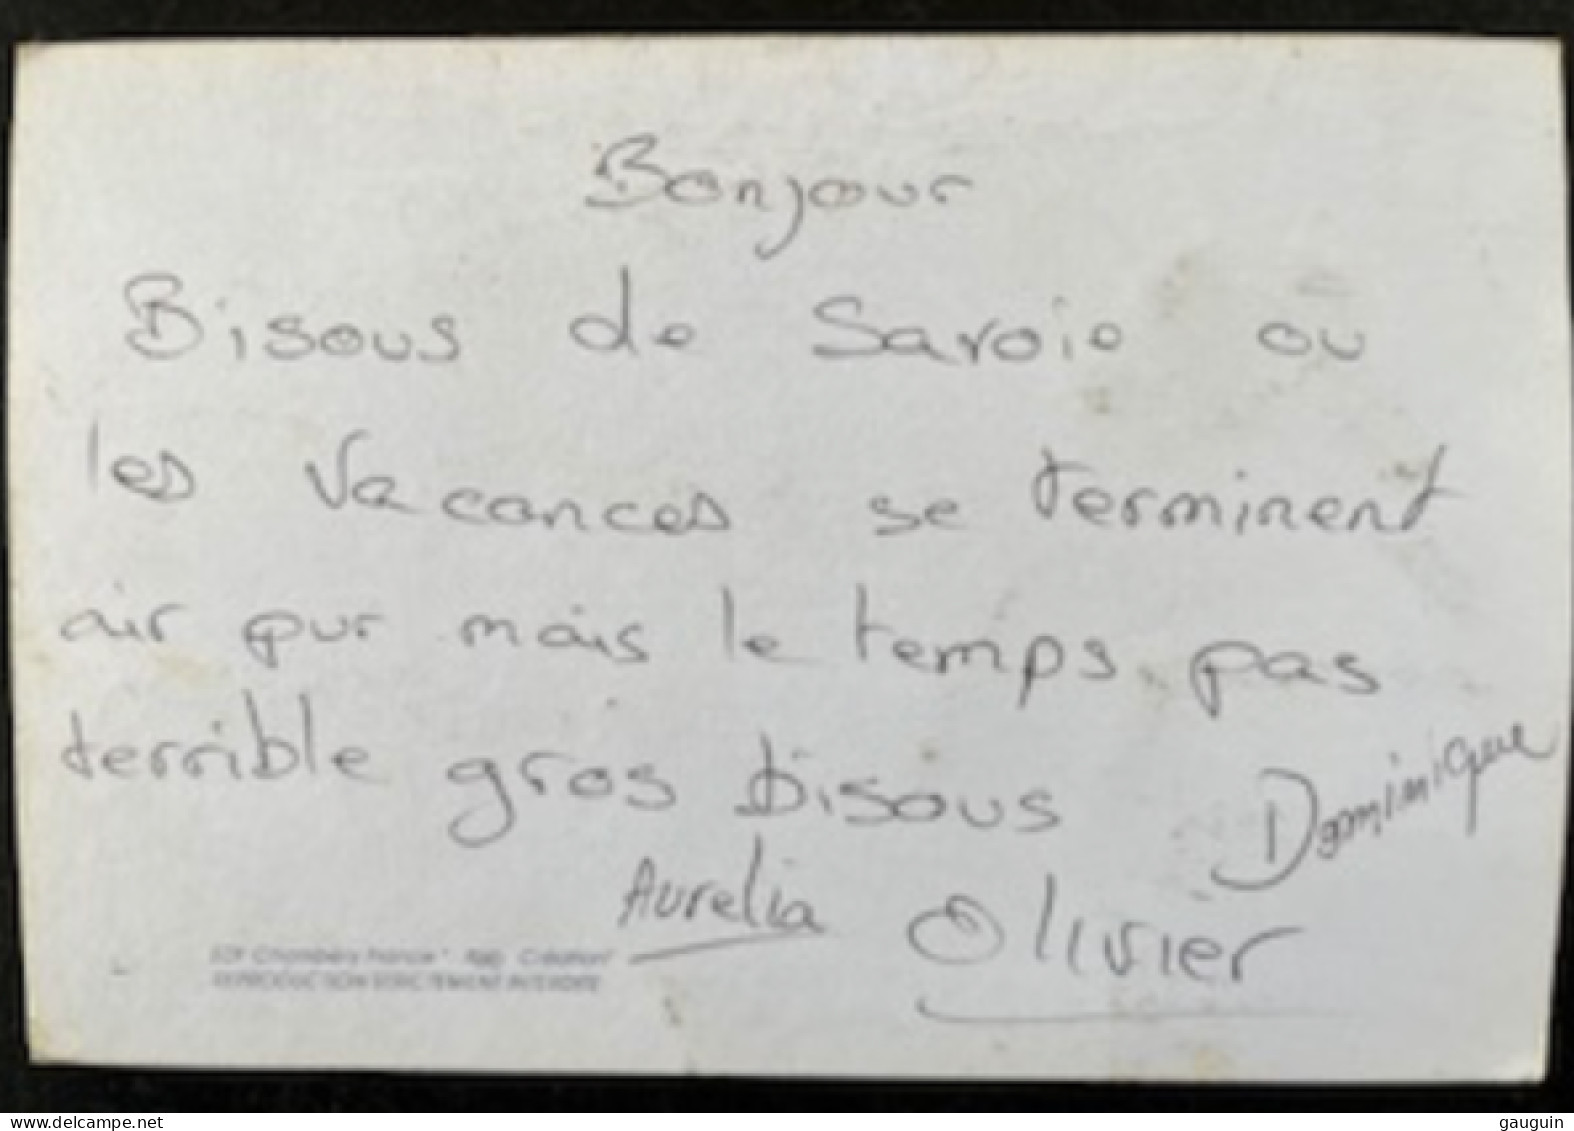 Bonjour
Bisous de Savoie ou
les vacances se terminent
air pur mais le temps pas
terrible gros bisous
Dominique
Aurelia Olivier
EDY Chambéry France * Création
REPRODUCTION STRICTEMENT INTERDITE
www.delcampe.net
gauguin